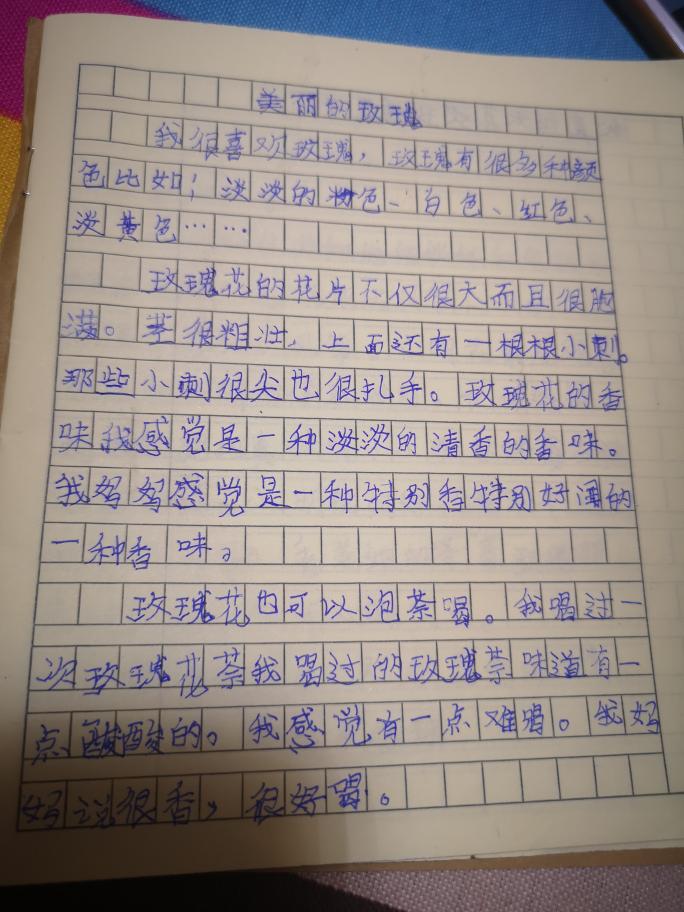 美丽的玫瑰
我很喜欢玫瑰，玫瑰有很多种颜
色比如：淡淡的粉色、白色、红色、
淡黄色……
玫瑰花的花片不仅很大而且很胞
满。茎很粗壮，上面还有一根根小刺。
那些小刺很尖也很扎手。玫瑰花的香
味我感觉是一种淡淡的清香的香味。
我妈妈感觉是一种特别香特别好闻的
一种香味。
玫瑰花也可以泡茶喝。我喝过一
次玫瑰花茶我喝过的玫瑰茶味道有一
点酸酸的。我感觉有一点难喝。我妈
妈说很香，很好喝。